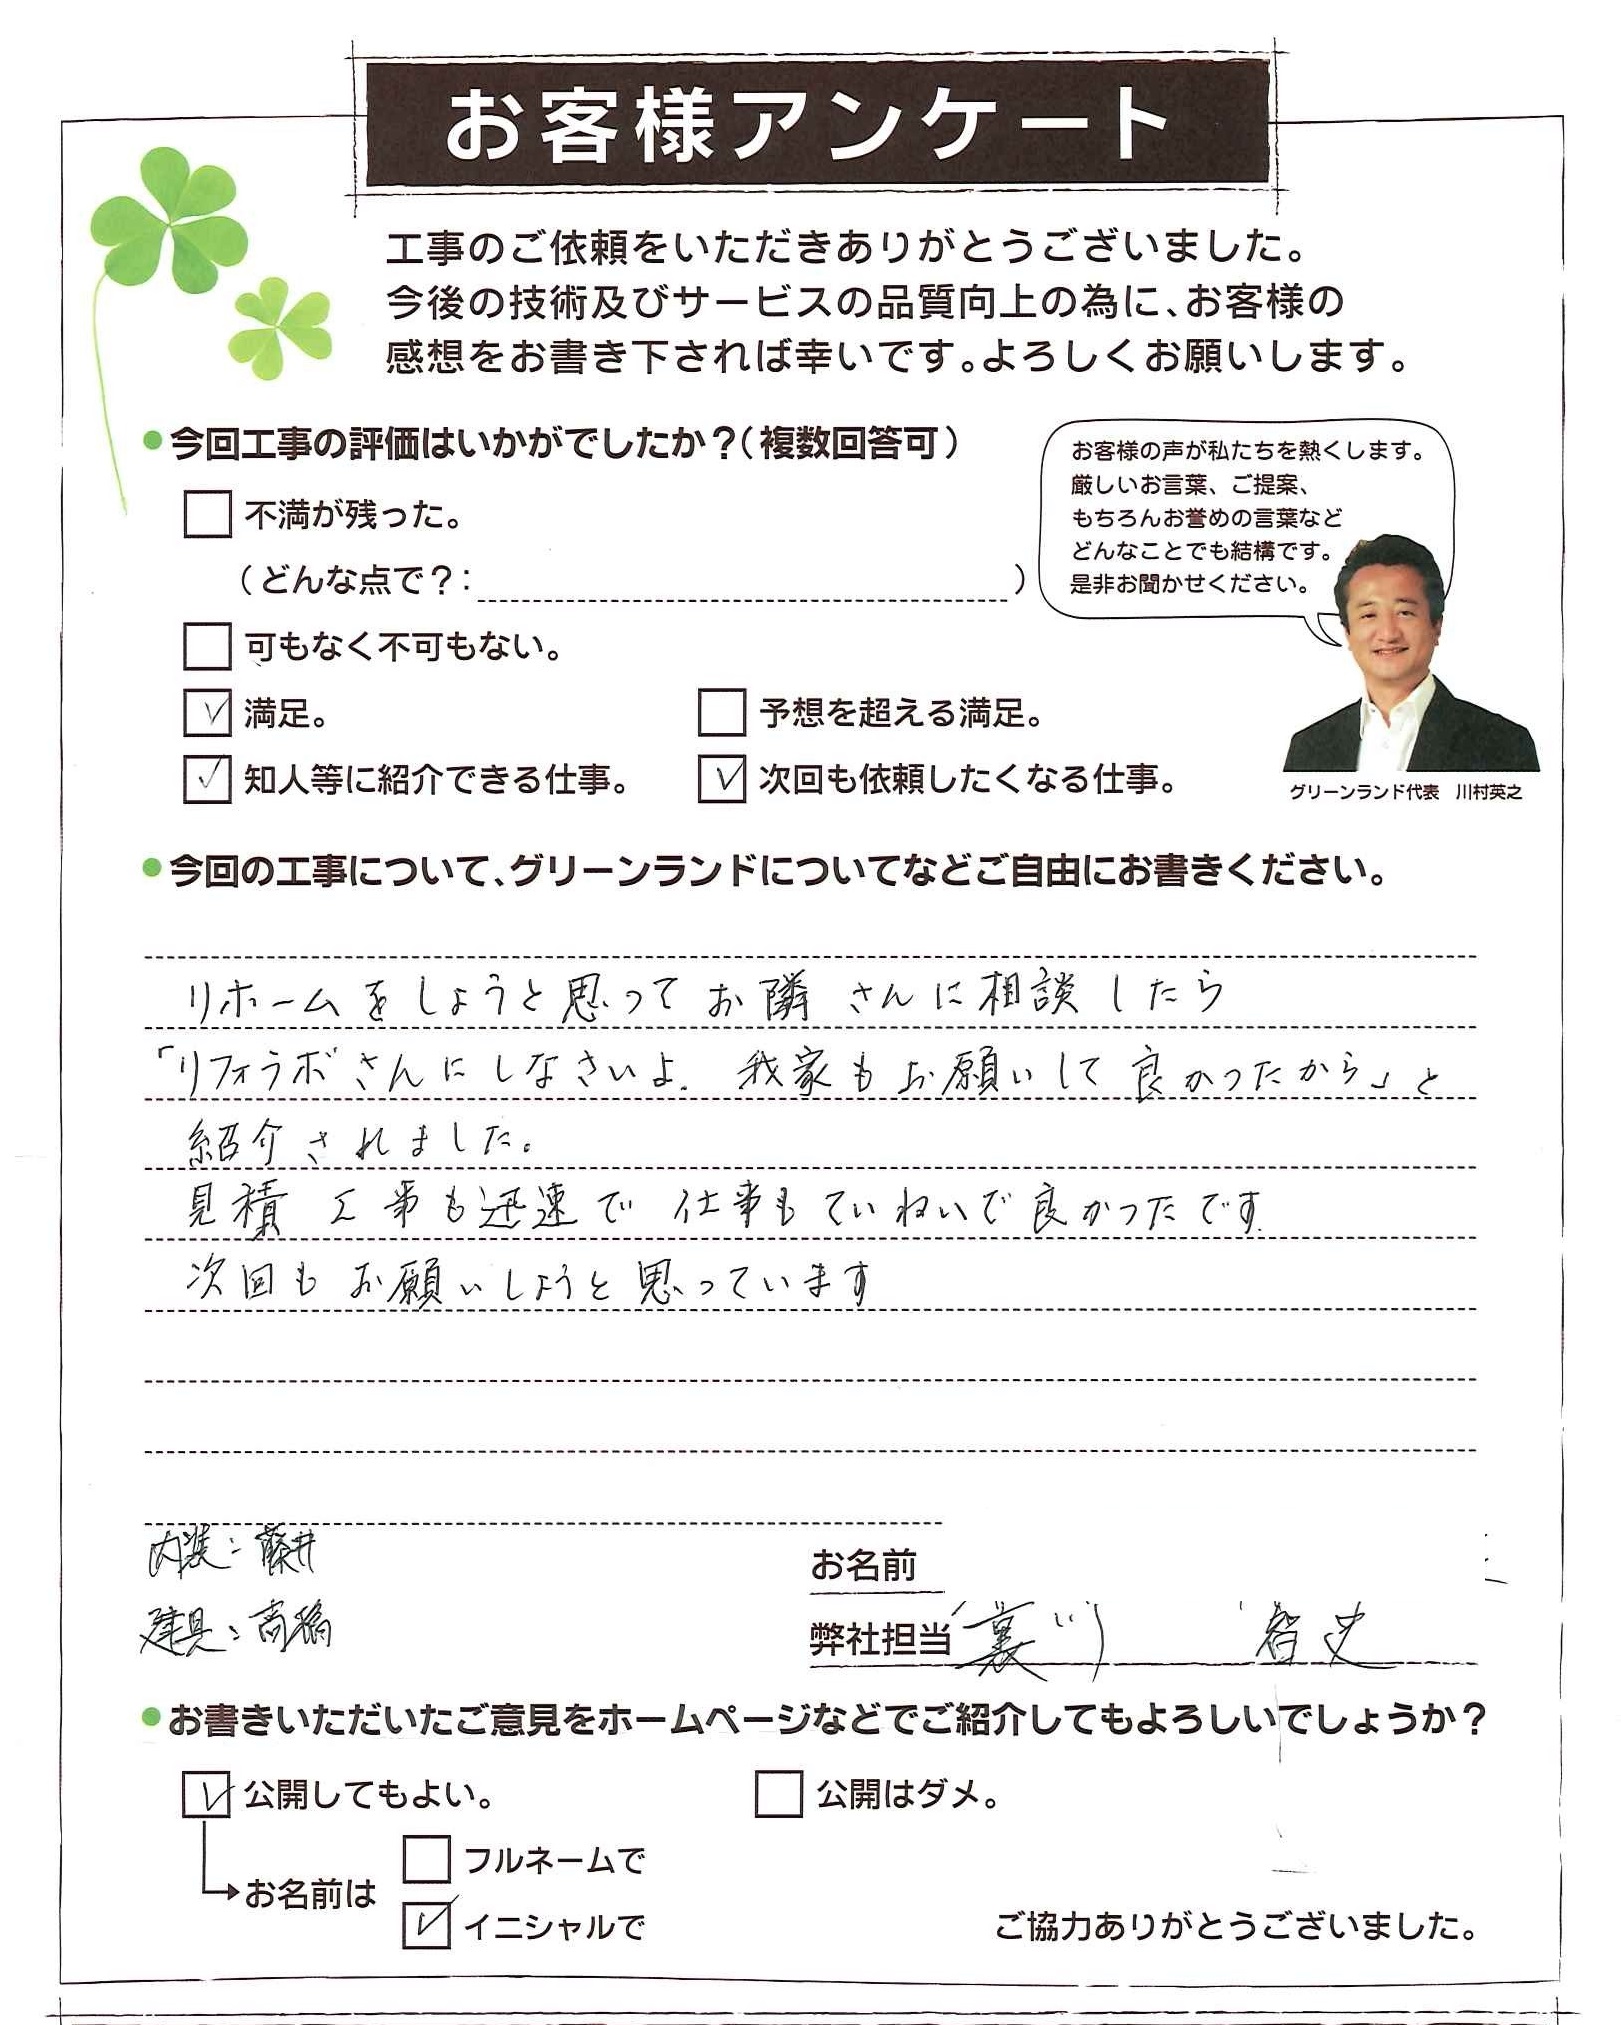 お客様アンケート
工事のご依頼をいただきありがとうございました。
今後の技術及びサービスの品質向上の為に、お客様の
感想をお書き下されば幸いです。よろしくお願いします。
●今回工事の評価はいかがでしたか?(複数回答可)
お客様の声が私たちを熱くします。
厳しいお言葉、ご提案、
もちろんお誉めの言葉など
どんなことでも結構です。
是非お聞かせください。
不満が残った。
(どんな点で?: )
可もなく不可もない。
満足。 予想を超える満足。
知人等に紹介できる仕事。 次回も依頼したくなる仕事。
グリーンランド代表 川村英之
●今回の工事について、グリーンランドについてなどご自由にお書きください。
リホームをしようと思ってお隣さんに相談したら
「リフォラボさんにしなさいよ. 我家もお願いして良かったから」と
紹介されました。
見積 工事も迅速で 仕事もていねいで良かったです.
次回もお願いしようと思っています
内装:藤井
建具:高橋
お名前
弊社担当 川 智史
●お書きいただいたご意見をホームページなどでご紹介してもよろしいでしょうか?
公開してもよい。 公開はダメ。
お名前は
フルネームで
イニシャルで
ご協力ありがとうございました。